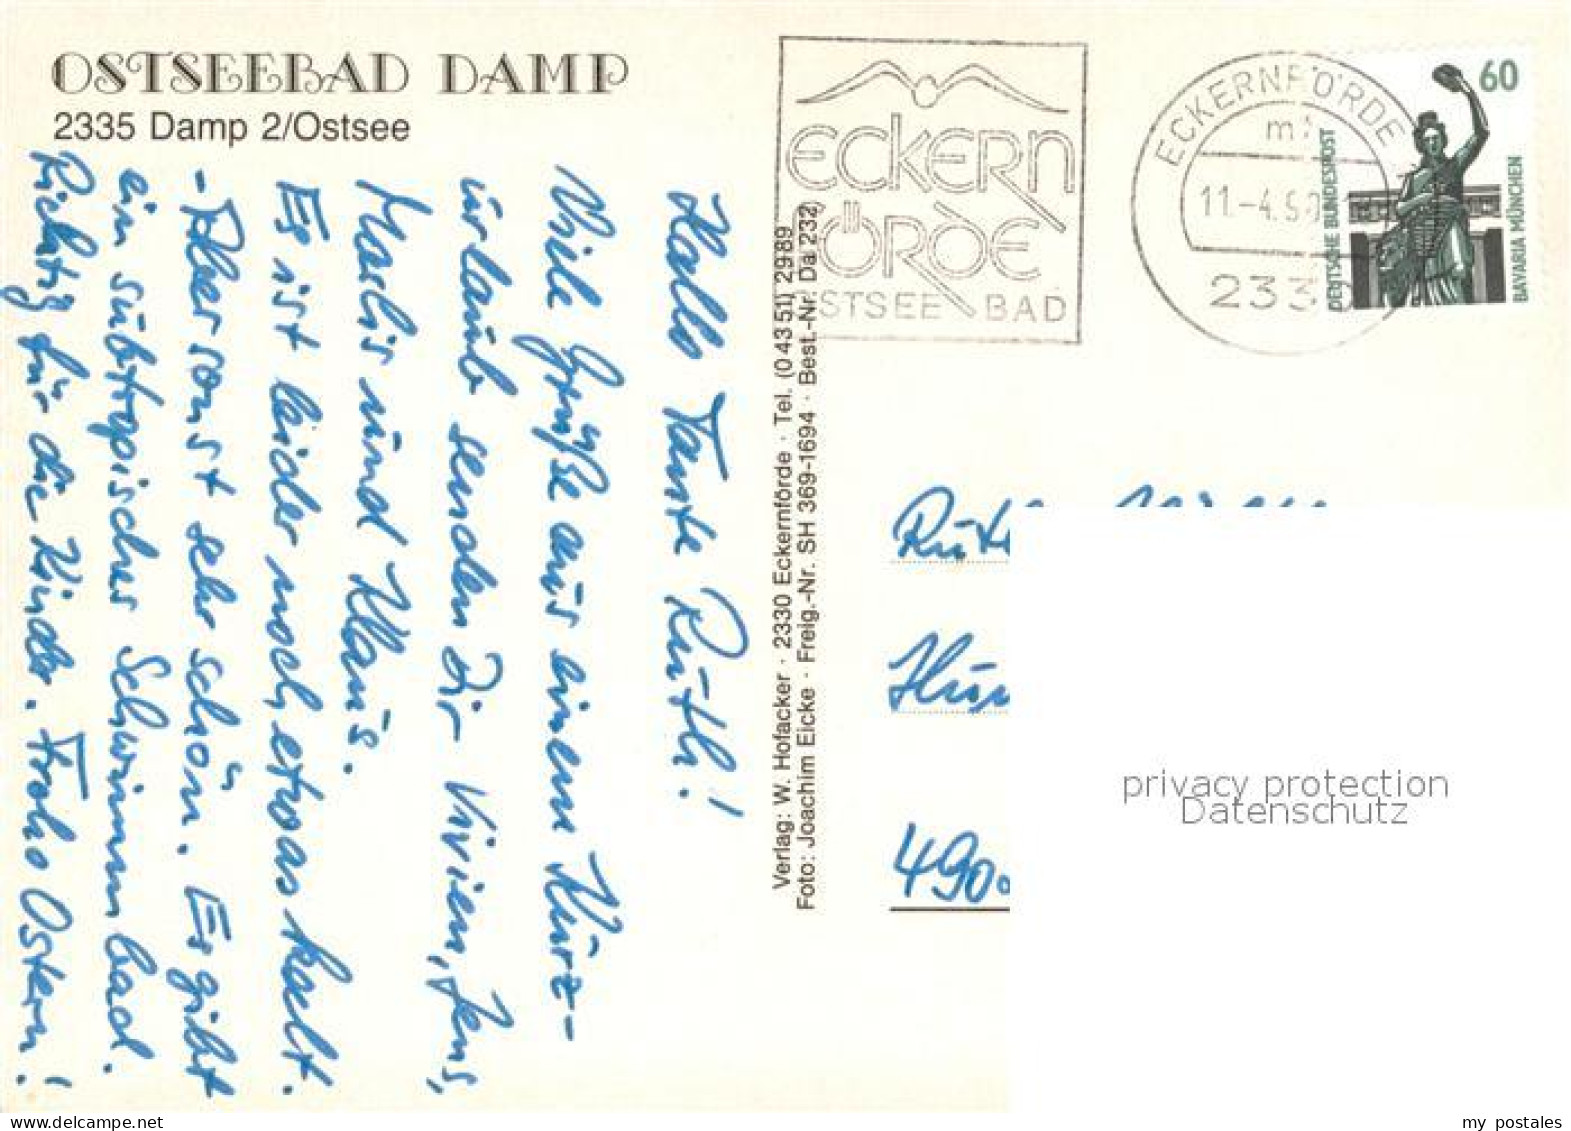 OSTSEEBAD DAMP
2335 Damp 2/Ostsee
Hallo Tante Ruth!
Viele Grüße aus einem Kurz-
urlaub senden Dir Vivien, Jens,
Marlis und Klaus.
Es ist leider noch etwas kalt.
- Aber sonst sehr schön. Es gibt
ein subtropisches Schwimmbad.
Richtig für die Kinder. Frohe Ostern!
Verlag: W. Hofacker · 2330 Eckernförde · Tel. (0 43 51) 29 89
Foto: Joachim Eicke · Freig.-Nr. SH 369-1694 · Best.-Nr. Da 232
ECKERN
FÖRDE
OSTSEEBAD
ECKERNFÖRDE
11.-4.90
233
60
DEUTSCHE BUNDESPOST
BAVARIA MÜNCHEN
490
privacy protection
Datenschutz
my postales